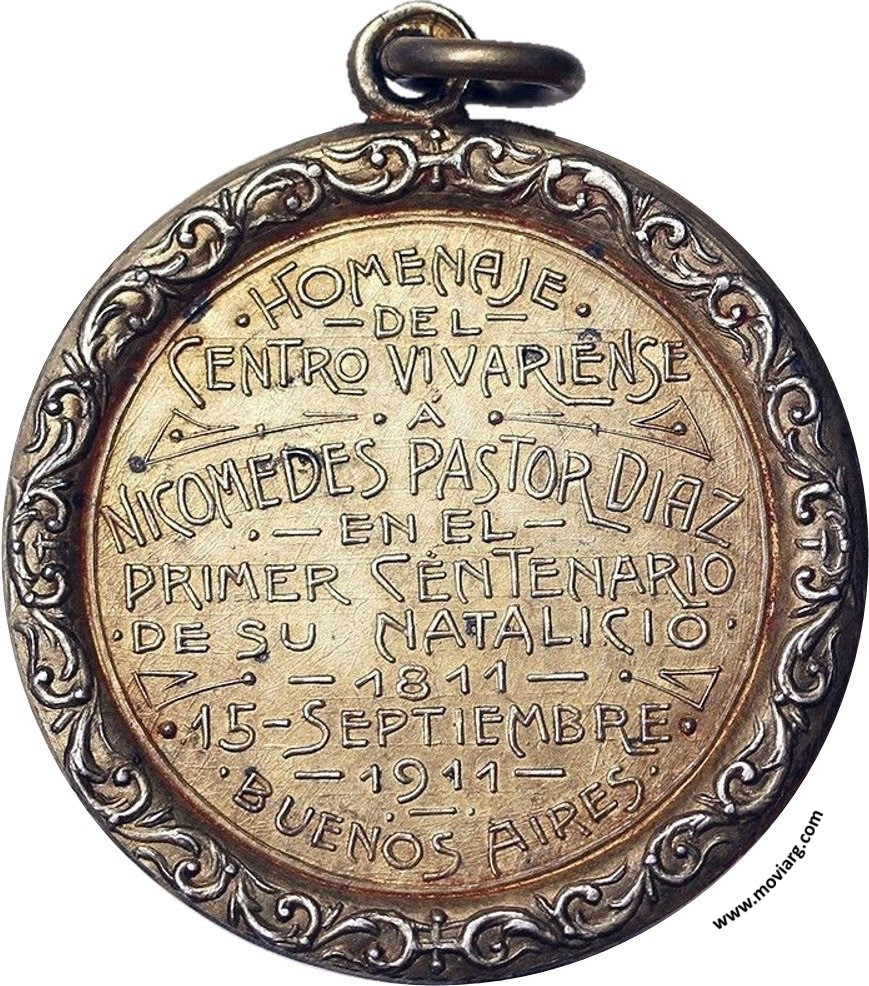 HOMENAJE
DEL
CENTRO VIVARIENSE
A
NICOMEDES PASTOR DIAZ
EN EL
PRIMER CENTENARIO
DE SU NATALICIO
1811
15-SEPTIEMBRE
1911
BUENOS AIRES
www.moviarg.com